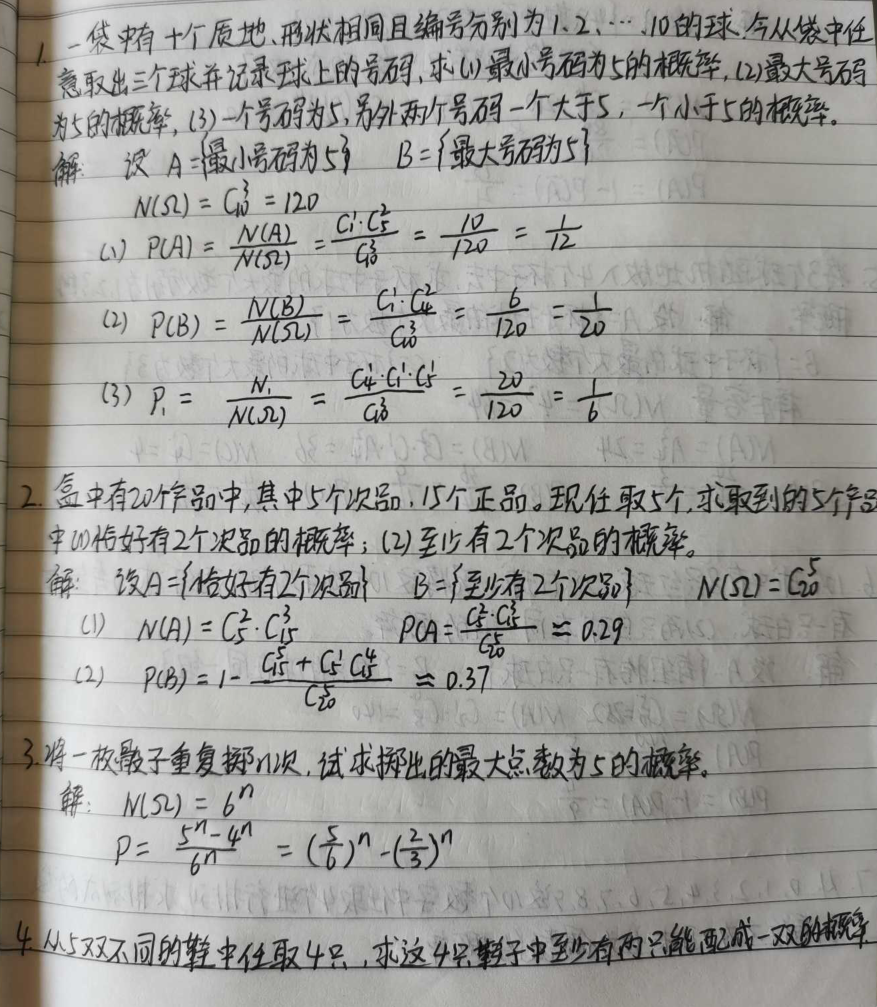 1. 一袋中有十个质地、形状相同且编号分别为1、2、…、10的球.今从袋中任
意取出三个球并记录球上的号码,求(1)最小号码为5的概率,(2)最大号码
为5的概率,(3)一个号码为5,另外两个号码一个大于5,一个小于5的概率。
解: 设 A={最小号码为5} B={最大号码为5}
N(Ω) = C₁₀³ = 120
(1) P(A) = N(A)/N(Ω) = C₁¹·C₅²/C₁₀³ = 10/120 = 1/12
(2) P(B) = N(B)/N(Ω) = C₁¹·C₄²/C₁₀³ = 6/120 = 1/20
(3) P₁ = N₁/N(Ω) = C₄¹·C₁¹·C₅¹/C₁₀³ = 20/120 = 1/6
2. 盒中有20个产品中,其中5个次品,15个正品。现任取5个,求取到的5个产品
中(1)恰好有2个次品的概率;(2)至少有2个次品的概率。
解: 设A={恰好有2个次品} B={至少有2个次品} N(Ω)=C₂₀⁵
(1) N(A) = C₅²·C₁₅³ P(A=C₅²·C₁₅³/C₂₀⁵ ≈ 0.29
(2) P(B) = 1- C₁₅⁵+C₅¹C₁₅⁴/C₂₀⁵ ≈ 0.37
3. 将一枚骰子重复掷n次,试求掷出的最大点数为5的概率。
解: N(Ω) = 6ⁿ
P= 5ⁿ-4ⁿ/6ⁿ = (5/6)ⁿ-(2/3)ⁿ
4. 从5双不同的鞋中任取4只,求这4只鞋子中至少有两只能配成一双的概率